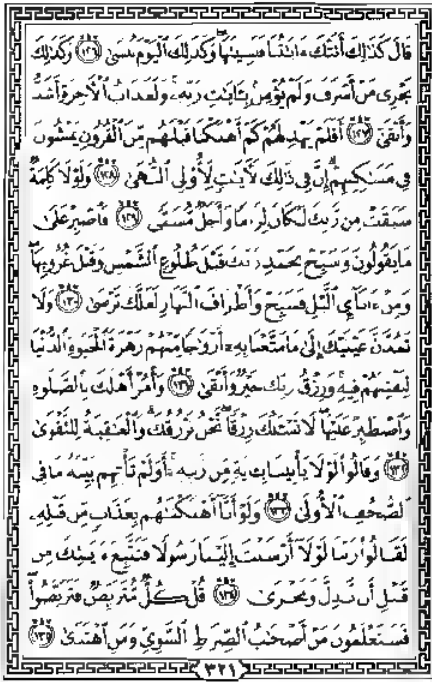 قَالَ كَذَٰلِكَ أَتَتْكَ ءَايَٰتُنَا فَنَسِيتَهَا ۖ وَكَذَٰلِكَ ٱلْيَوْمَ تُنسَىٰ ١٢٦ وَكَذَٰلِكَ
نَجْزِى مَنْ أَسْرَفَ وَلَمْ يُؤْمِنۢ بِـَٔايَٰتِ رَبِّهِۦ ۚ وَلَعَذَابُ ٱلْءَاخِرَةِ أَشَدُّ
وَأَبْقَىٰٓ ١٢٧ أَفَلَمْ يَهْدِ لَهُمْ كَمْ أَهْلَكْنَا قَبْلَهُم مِّنَ ٱلْقُرُونِ يَمْشُونَ
فِى مَسَٰكِنِهِمْ ۗ إِنَّ فِى ذَٰلِكَ لَءَايَٰتٍ لِّأُو۟لِى ٱلنُّهَىٰ ١٢٨ وَلَوْلَا كَلِمَةٌ
سَبَقَتْ مِن رَّبِّكَ لَكَانَ لِزَامًا وَأَجَلٌ مُّسَمًّى ١٢٩ فَٱصْبِرْ عَلَىٰ
مَا يَقُولُونَ وَسَبِّحْ بِحَمْدِ رَبِّكَ قَبْلَ طُلُوعِ ٱلشَّمْسِ وَقَبْلَ غُرُوبِهَا ۖ
وَمِنْ ءَانَآئِ ٱلَّيْلِ فَسَبِّحْ وَأَطْرَافَ ٱلنَّهَارِ لَعَلَّكَ تَرْضَىٰ ١٣٠ وَلَا
تَمُدَّنَّ عَيْنَيْكَ إِلَىٰ مَا مَتَّعْنَا بِهِۦٓ أَزْوَٰجًا مِّنْهُمْ زَهْرَةَ ٱلْحَيَوٰةِ ٱلدُّنْيَا
لِنَفْتِنَهُمْ فِيهِ ۚ وَرِزْقُ رَبِّكَ خَيْرٌ وَأَبْقَىٰ ١٣١ وَأْمُرْ أَهْلَكَ بِٱلصَّلَوٰةِ
وَٱصْطَبِرْ عَلَيْهَا ۖ لَا نَسْـَٔلُكَ رِزْقًا ۖ نَّحْنُ نَرْزُقُكَ ۗ وَٱلْعَٰقِبَةُ لِلتَّقْوَىٰ
١٣٢ وَقَالُوا۟ لَوْلَا يَأْتِينَا بِـَٔايَةٍ مِّن رَّبِّهِۦٓ ۚ أَوَلَمْ تَأْتِهِم بَيِّنَةُ مَا فِى
ٱلصُّحُفِ ٱلْأُولَىٰ ١٣٣ وَلَوْ أَنَّآ أَهْلَكْنَٰهُم بِعَذَابٍ مِّن قَبْلِهِۦ
لَقَالُوا۟ رَبَّنَا لَوْلَآ أَرْسَلْتَ إِلَيْنَا رَسُولًا فَنَتَّبِعَ ءَايَٰتِكَ مِن
قَبْلِ أَن نَّذِلَّ وَنَخْزَىٰ ١٣٤ قُلْ كُلٌّ مُّتَرَبِّصٌ فَتَرَبَّصُوا۟ ۖ
فَسَتَعْلَمُونَ مَنْ أَصْحَٰبُ ٱلصِّرَٰطِ ٱلسَّوِىِّ وَمَنِ ٱهْتَدَىٰ ١٣٥
٣٢١